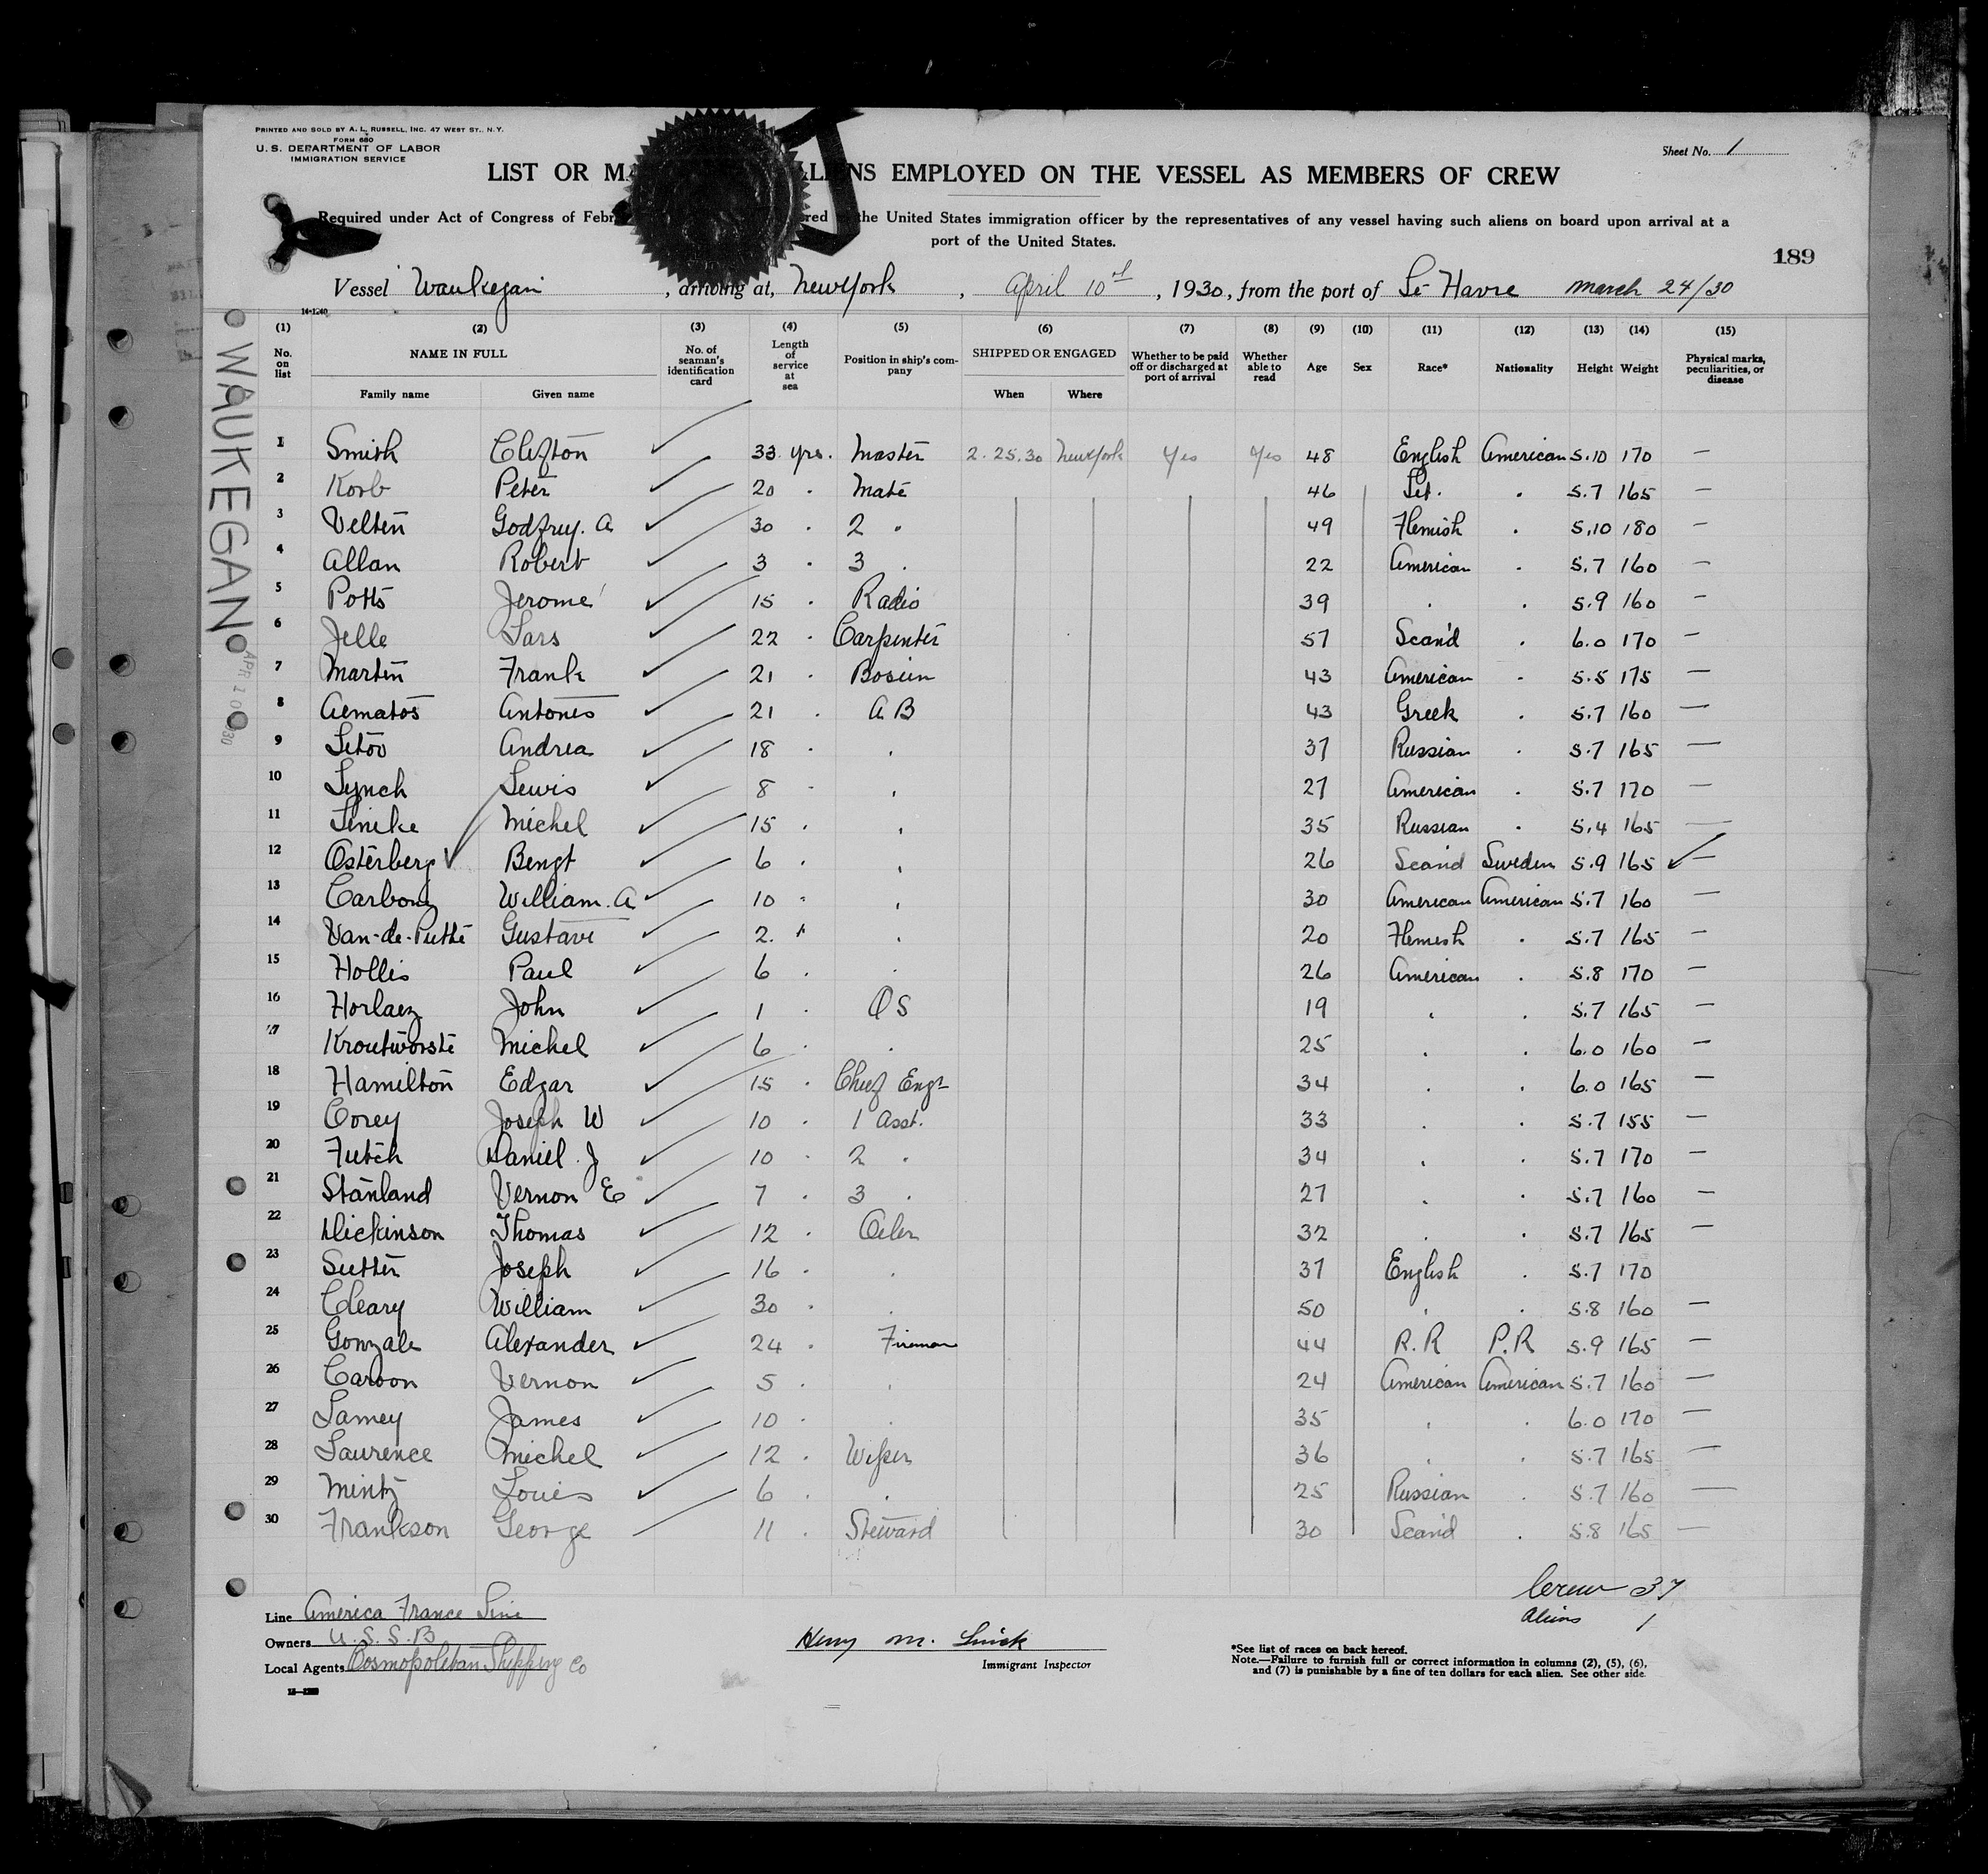 PRINTED AND SOLD BY A. L. RUSSELL, INC. 47 WEST ST., N.Y.
FORM 680
U. S. DEPARTMENT OF LABOR
IMMIGRATION SERVICE
Sheet No. 1
LIST OR MA ALIENS EMPLOYED ON THE VESSEL AS MEMBERS OF CREW
Required under Act of Congress of Febr the United States immigration officer by the representatives of any vessel having such aliens on board upon arrival at a
port of the United States.
189
Vessel Waukegan, arriving at, New York, April 10, 1930, from the port of Le Havre March 24/30
14-1240
(1) (2) (3) (4) (5) (6) (7) (8) (9) (10) (11) (12) (13) (14) (15)
No. on list NAME IN FULL No. of seaman's identification card Length of service at sea Position in ship's company SHIPPED OR ENGAGED Whether to be paid off or discharged at port of arrival Whether able to read Age Sex Race* Nationality Height Weight Physical marks, peculiarities, or disease
Family name Given name When Where
WAUKEGAN
1 Smith Clifton 33 yrs. Master 2.25.30 New York Yes Yes 48 English American 5.10 170 —
2 Korb Peter 20 . Mate 46 Let. . 5.7 165 —
3 Velten Godfrey. A 30 . 2 " 49 Flemish . 5.10 180 —
4 Allan Robert 3 . 3 . 22 American . 5.7 160 —
5 Potts Jerome 15 . Radio 39 . . 5.9 160 —
6 Jelle Lars 22 . Carpenter 57 Scan'd . 6.0 170 —
7 Martin Frank 21 . Bosun 43 American . 5.5 175 —
8 Aematos Antonis 21 . A B 43 Greek . 5.7 160 —
9 Litov Andrea 18 . . 37 Russian . 5.7 165 —
10 Lynch Lewis 8 . . 27 American . 5.7 170 —
11 Linike Michel 15 . . 35 Russian . 5.4 165 —
12 Osterberg Bengt 6 . . 26 Scand Sweden 5.9 165 —
13 Carbony William. A 10 . . 30 American American 5.7 160 —
14 Van-de-Putte Gustave 2. . 20 Flemish . 5.7 165 —
15 Hollis Paul 6 . . 26 American . 5.8 170 —
16 Horlaez John 1 . O S 19 . . 5.7 165 —
17 Kroutworste Michel 6 . . 25 . . 6.0 160 —
18 Hamilton Edgar 15 . Chief Engr 34 . . 6.0 165 —
19 Corey Joseph W 10 . 1 Asst. 33 . . 5.7 155 —
20 Futch Daniel. J 10 . 2 . 34 . . 5.7 170 —
21 Stanland Vernon E 7 . 3 . 27 . . 5.7 160 —
22 Dickinson Thomas 12 . Oiler 32 . . 5.7 165 —
23 Sutter Joseph 16 . . 37 English . 5.7 170
24 Cleary William 30 . . 50 . . 5.8 160 —
25 Gonzale Alexander 24 . Fireman 44 R.R P.R 5.9 165 —
26 Caroon Vernon 5 . . 24 American American 5.7 160 —
27 Lamey James 10 . . 35 . . 6.0 170 —
28 Laurence Michel 12 . Wiper 36 . . 5.7 165 —
29 Mintz Louis 6 . . 25 Russian . 5.7 160 —
30 Frankson George 11 . Steward 30 Scand . 5.8 165 —
Crew 37
Aliens 1
Line America France Line
Owners U.S.S.B
Local Agents Cosmopolitan Shipping Co
Henry M.
Immigrant Inspector
*See list of races on back hereof.
Note.—Failure to furnish full or correct information in columns (2), (5), (6),
and (7) is punishable by a fine of ten dollars for each alien. See other side.